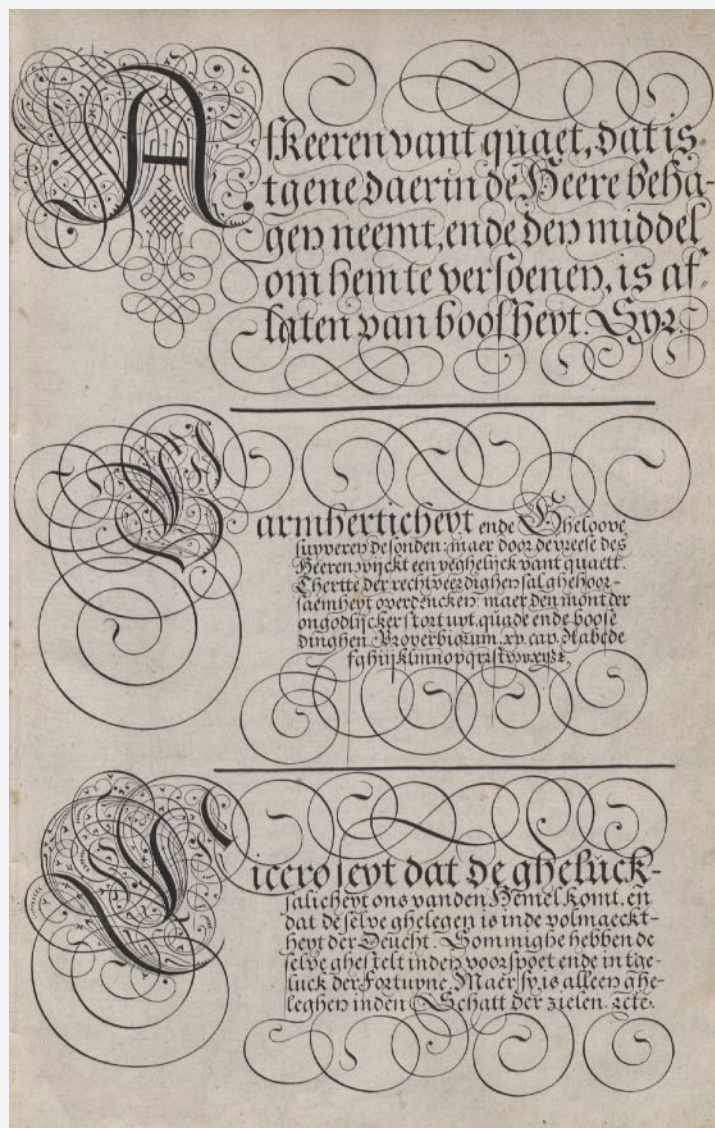 Afkeeren vant quaet, dat is
tgene daer in de Heere beha-
gen neemt, ende den middel
om hem te versoenen, is af-
laten van boosheyt. Syr.
Barmherticheyt ende Gheloove
suyveren de sonden: maer door de vreese des
Heeren wijckt een yeghelijck vant quaett.
Thertte der rechtveerdighen sal ghehoor-
saemheyt overdencken: maer den mont der
ongodlijcker stort uyt, quade ende boose
dinghen. Proverbiorum. xv. cap.
fghijklmnopqrrsstvwxyz
Cicero seyt dat de gheluck-
salicheyt ons vanden Hemel komt. en̄
dat de selve ghelegen is inde volmaeckt-
heyt der Deucht. Sommighe hebben de
selve ghestelt inden voorspoet ende in tge-
luck der Fortuyne. Maer sy is alleen ghe-
leghen inden Schatt der zielen. &cte.